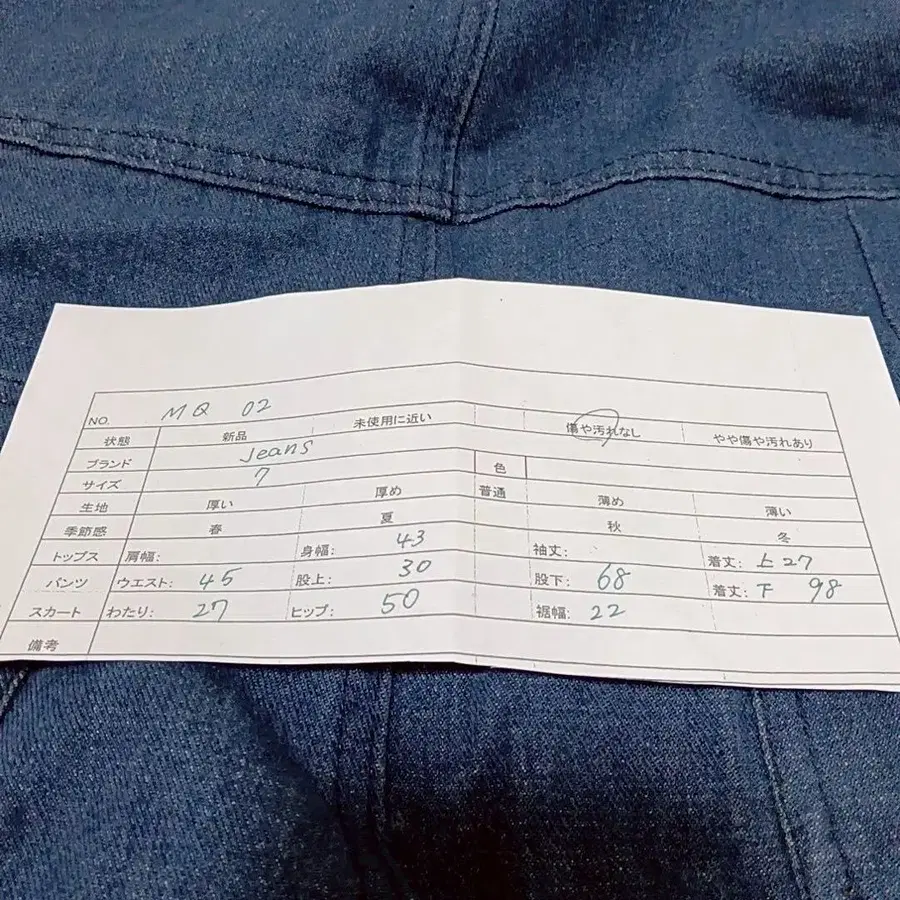 NO. MQ 02
状態 新品 未使用に近い 傷や汚れなし やや傷や汚れあり
ブランド Jeans 色
サイズ 7
生地 厚い 厚め 普通 薄め 薄い
季節感 春 夏 秋 冬
トップス 肩幅: 身幅: 43 袖丈: 着丈: 上27
パンツ ウエスト: 45 股上: 30 股下: 68 着丈: 下 98
スカート わたり: 27 ヒップ: 50 裾幅: 22
備考